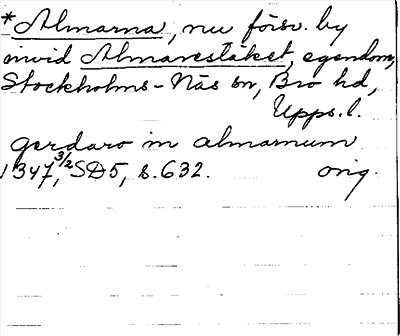 *Almarna, nu försv. by
invid Almarestäket, egendom,
Stockholms-Näs sn, Bro hd,
Upps. l.
gerdaro in almarnum
1347, 3/2 SD5, s. 632. orig.